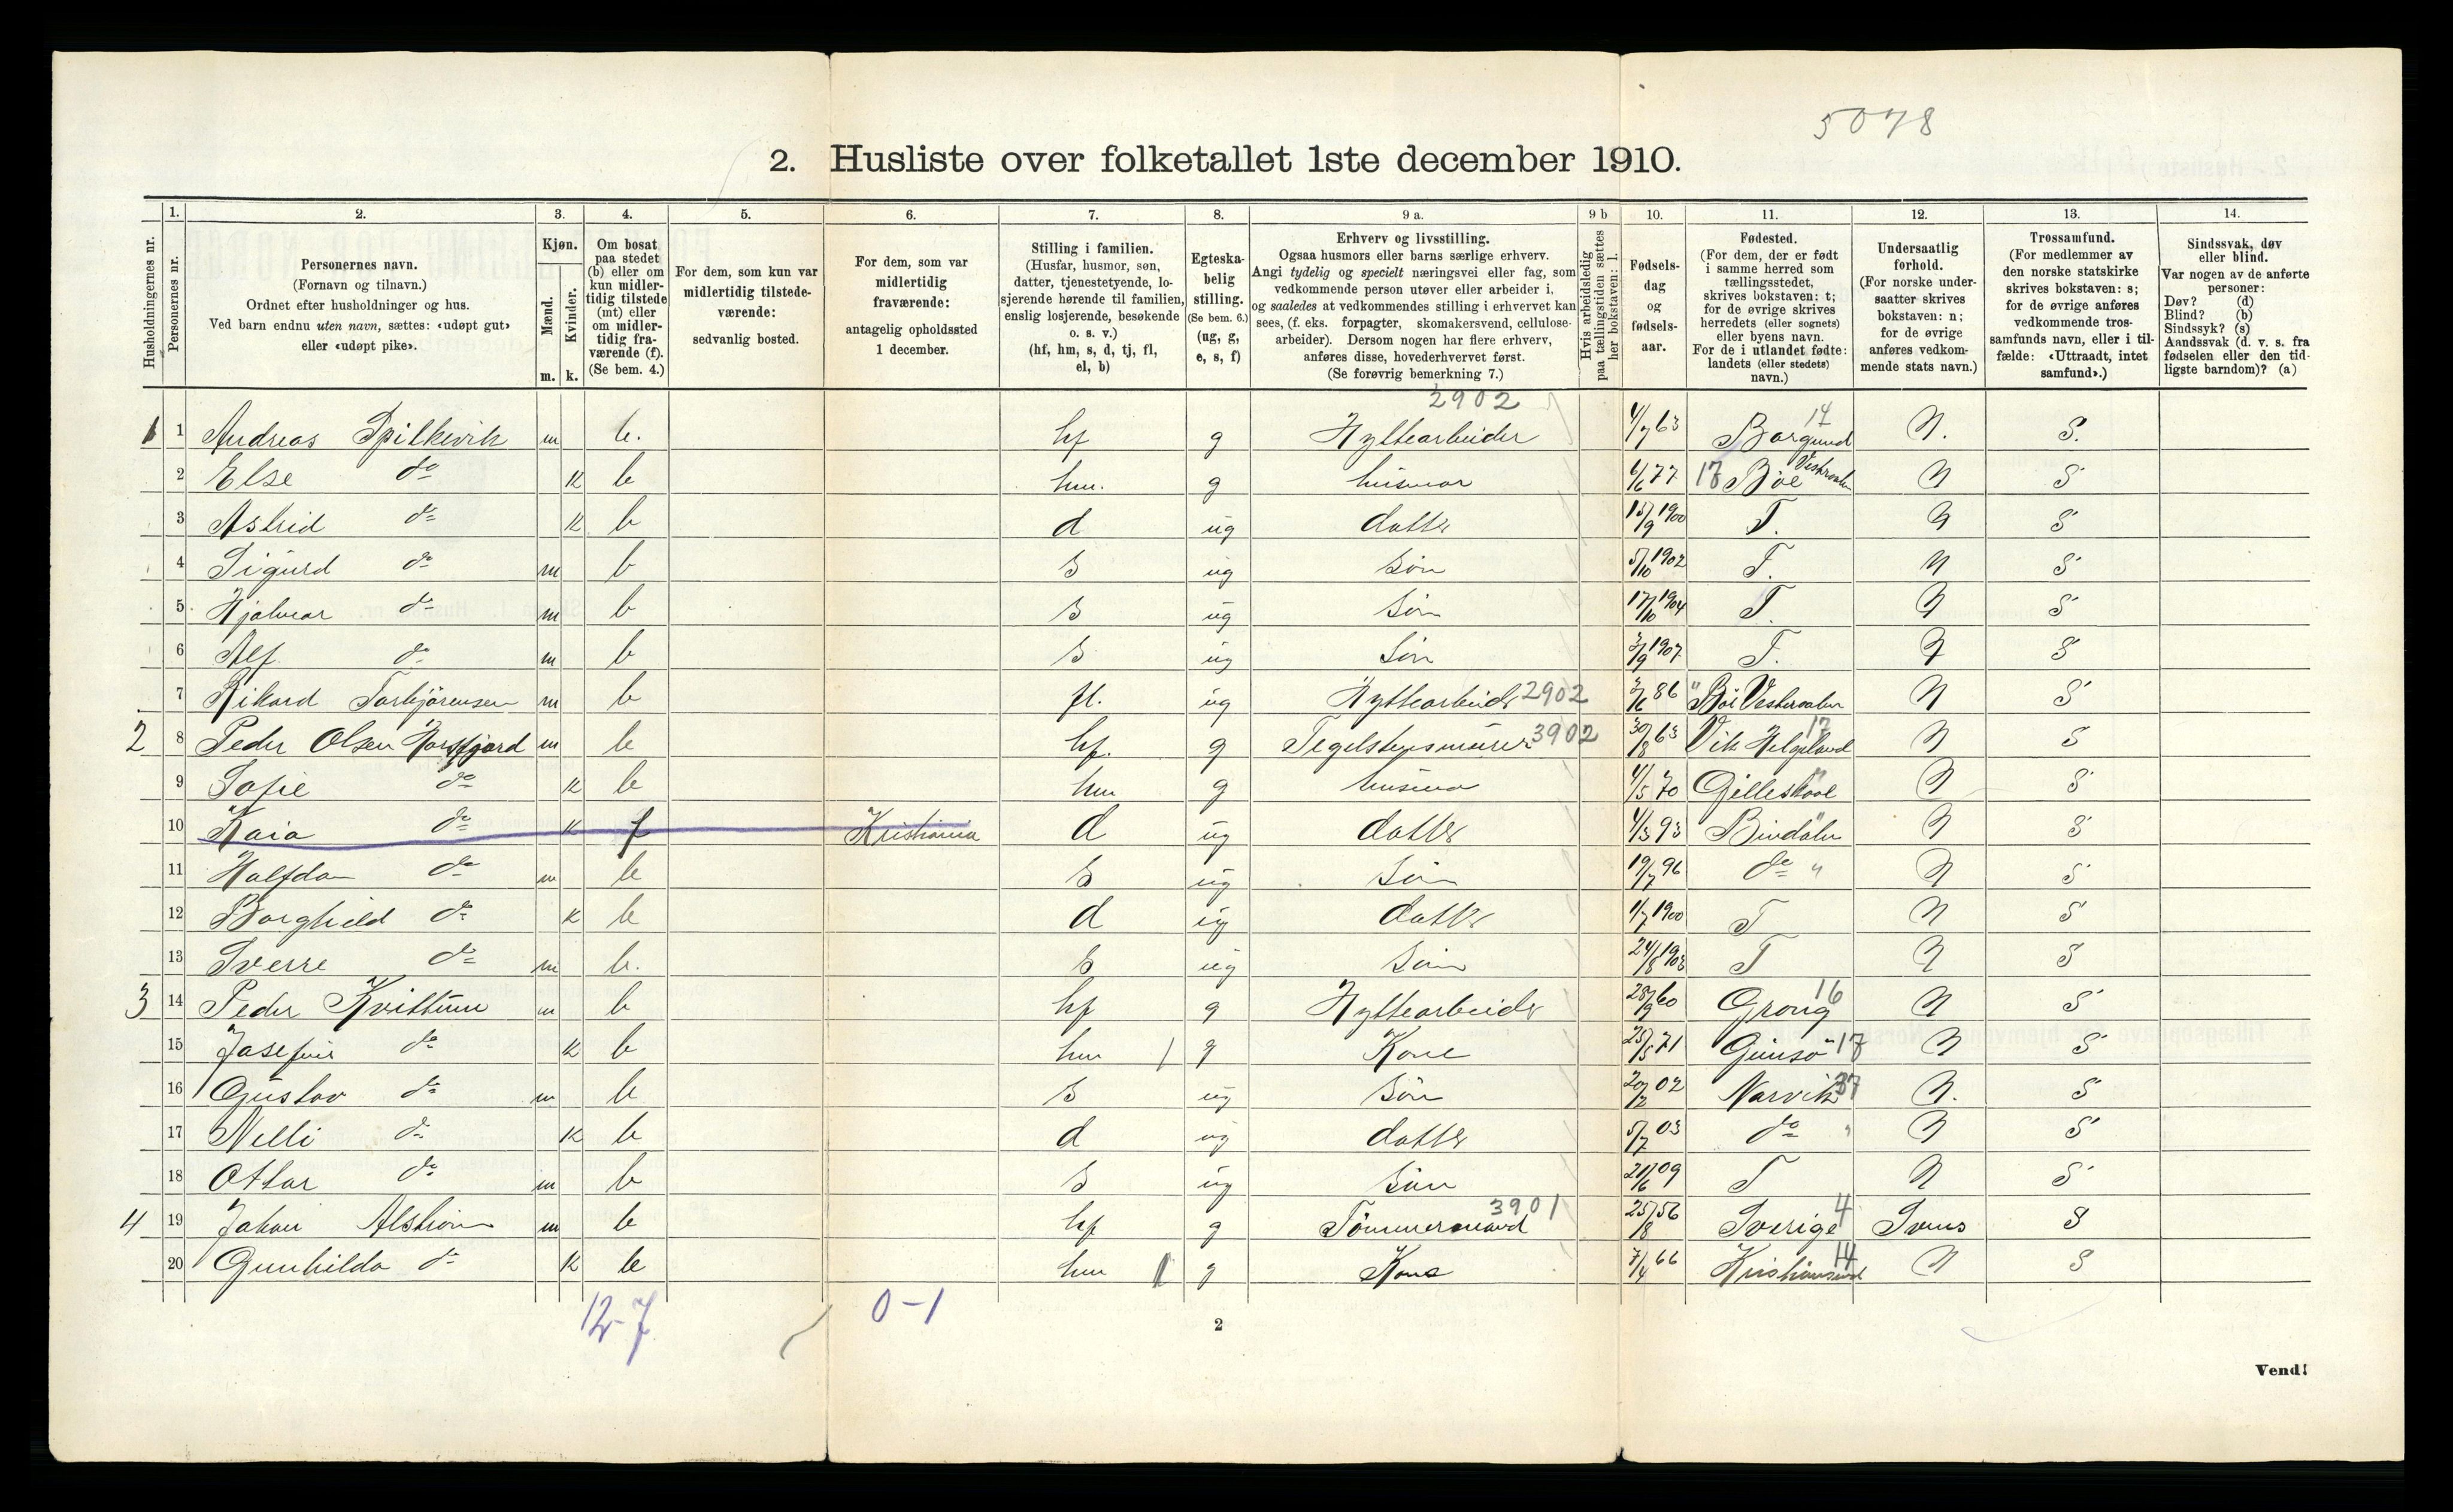 5078
2. Husliste over folketallet 1ste december 1910.
Husholdningernes nr.
1. Personernes nr.
2. Personernes navn.
(Fornavn og tilnavn.)
Ordnet efter husholdninger og hus.
Ved barn endnu uten navn, sættes: «udøpt gut»
eller «udøpt pike».
3. Kjøn.
Mænd. m.
Kvinder. k.
4. Om bosat
paa stedet
(b) eller om
kun midler-
tidig tilstede
(mt) eller
om midler-
tidig fra-
værende (f).
(Se bem. 4.)
5. For dem, som kun var
midlertidig tilstede-
værende:
sedvanlig bosted.
6. For dem, som var
midlertidig
fraværende:
antagelig opholdssted
1 december.
7. Stilling i familien.
(Husfar, husmor, søn,
datter, tjenestetyende, lo-
sjerende hørende til familien,
enslig losjerende, besøkende
o. s. v.)
(hf, hm, s, d, tj, fl,
el, b)
8. Egteska-
belig
stilling.
(Se bem. 6.)
(ug, g,
e, s, f)
9 a. Erhverv og livsstilling.
Ogsaa husmors eller barns særlige erhverv.
Angi tydelig og specielt næringsvei eller fag, som
vedkommende person utøver eller arbeider i,
og saaledes at vedkommendes stilling i erhvervet kan
sees, (f. eks. forpagter, skomakersvend, cellulose-
arbeider). Dersom nogen har flere erhverv,
anføres disse, hovederhvervet først.
(Se forøvrig bemerkning 7.)
9 b Hvis arbeidsledig
paa tællingstiden sættes
her bokstaven: l.
10. Fødsels-
dag
og
fødsels-
aar.
11. Fødested.
(For dem, der er født
i samme herred som
tællingsstedet,
skrives bokstaven: t;
for de øvrige skrives
herredets (eller sognets)
eller byens navn.
For de i utlandet fødte:
landets (eller stedets)
navn.)
12. Undersaatlig
forhold.
(For norske under-
saatter skrives
bokstaven: n;
for de øvrige
anføres vedkom-
mende stats navn.)
13. Trossamfund.
(For medlemmer av
den norske statskirke
skrives bokstaven: s;
for de øvrige anføres
vedkommende tros-
samfunds navn, eller i til-
fælde: «Uttraadt, intet
samfund».)
14. Sindssvak, døv
eller blind.
Var nogen av de anførte
personer:
Døv? (d)
Blind? (b)
Sindssyk? (s)
Aandssvak (d. v. s. fra
fødselen eller den tid-
ligste barndom)? (a)
2902
1 1 Andreas Spilkevik m b. hf g Hyttearbeider 4/7 63 Borgund 14 N. S.
2 Else do k b hm. g husmor 6/6 77 17 Bøe Vesteraalen N S
3 Astrid do k b d ug datter 15/9 1900 T. N S
4 Sigurd do m b s ug søn 5/10 1902 T. N S
5 Hjalmar do m b s ug søn 17/10 1904 T. N S
6 Alf do m b s ug søn 3/9 1907 T. N S
7 Rikard Torbjörensen m b fl. ug Hyttearbeider 2902 86 " Bøi Vesteraalen N S
2 8 Peder Olsen Horsfjord m b hf. g Tegelstensmurer 3902 30/8 63 Vik Helgeland 17 N S
9 Sofie do k b hm g husmor 4/5 70 Gilleskaal " N S
10 Kaia do k f Kristiania d ug datter 4/3 93 Bindalen " N S
11 Halfdan do m b s ug søn 19/7 96 do " N S
12 Borghild do k b d ug datter 1/7 1900 T N S
13 Sverre do m b. s ug søn 24/8 1903 T N S
3 14 Peder Kvittum m b hf g Hyttearbeider 28/9 60 Grong 16 N S
15 Josefine do k b hm 1 g Kone 25/5 71 Gimsø 17 N S
16 Gustav do m b s ug søn 20/2 02 Narvik 37 N. S
17 Nelli do k b d ug datter 5/7 03 do " N S
18 Ottar do m b s ug søn 21/6 09 T N S
4 19 Johan Alström m b hf g Tömmermand 3901 25/8 56 Sverige 4 Svens S
20 Gunhilda do k b hm 1 g Kone 7/4 66 Kristiansund 14 N S
12-7
0-1
2
Vend!